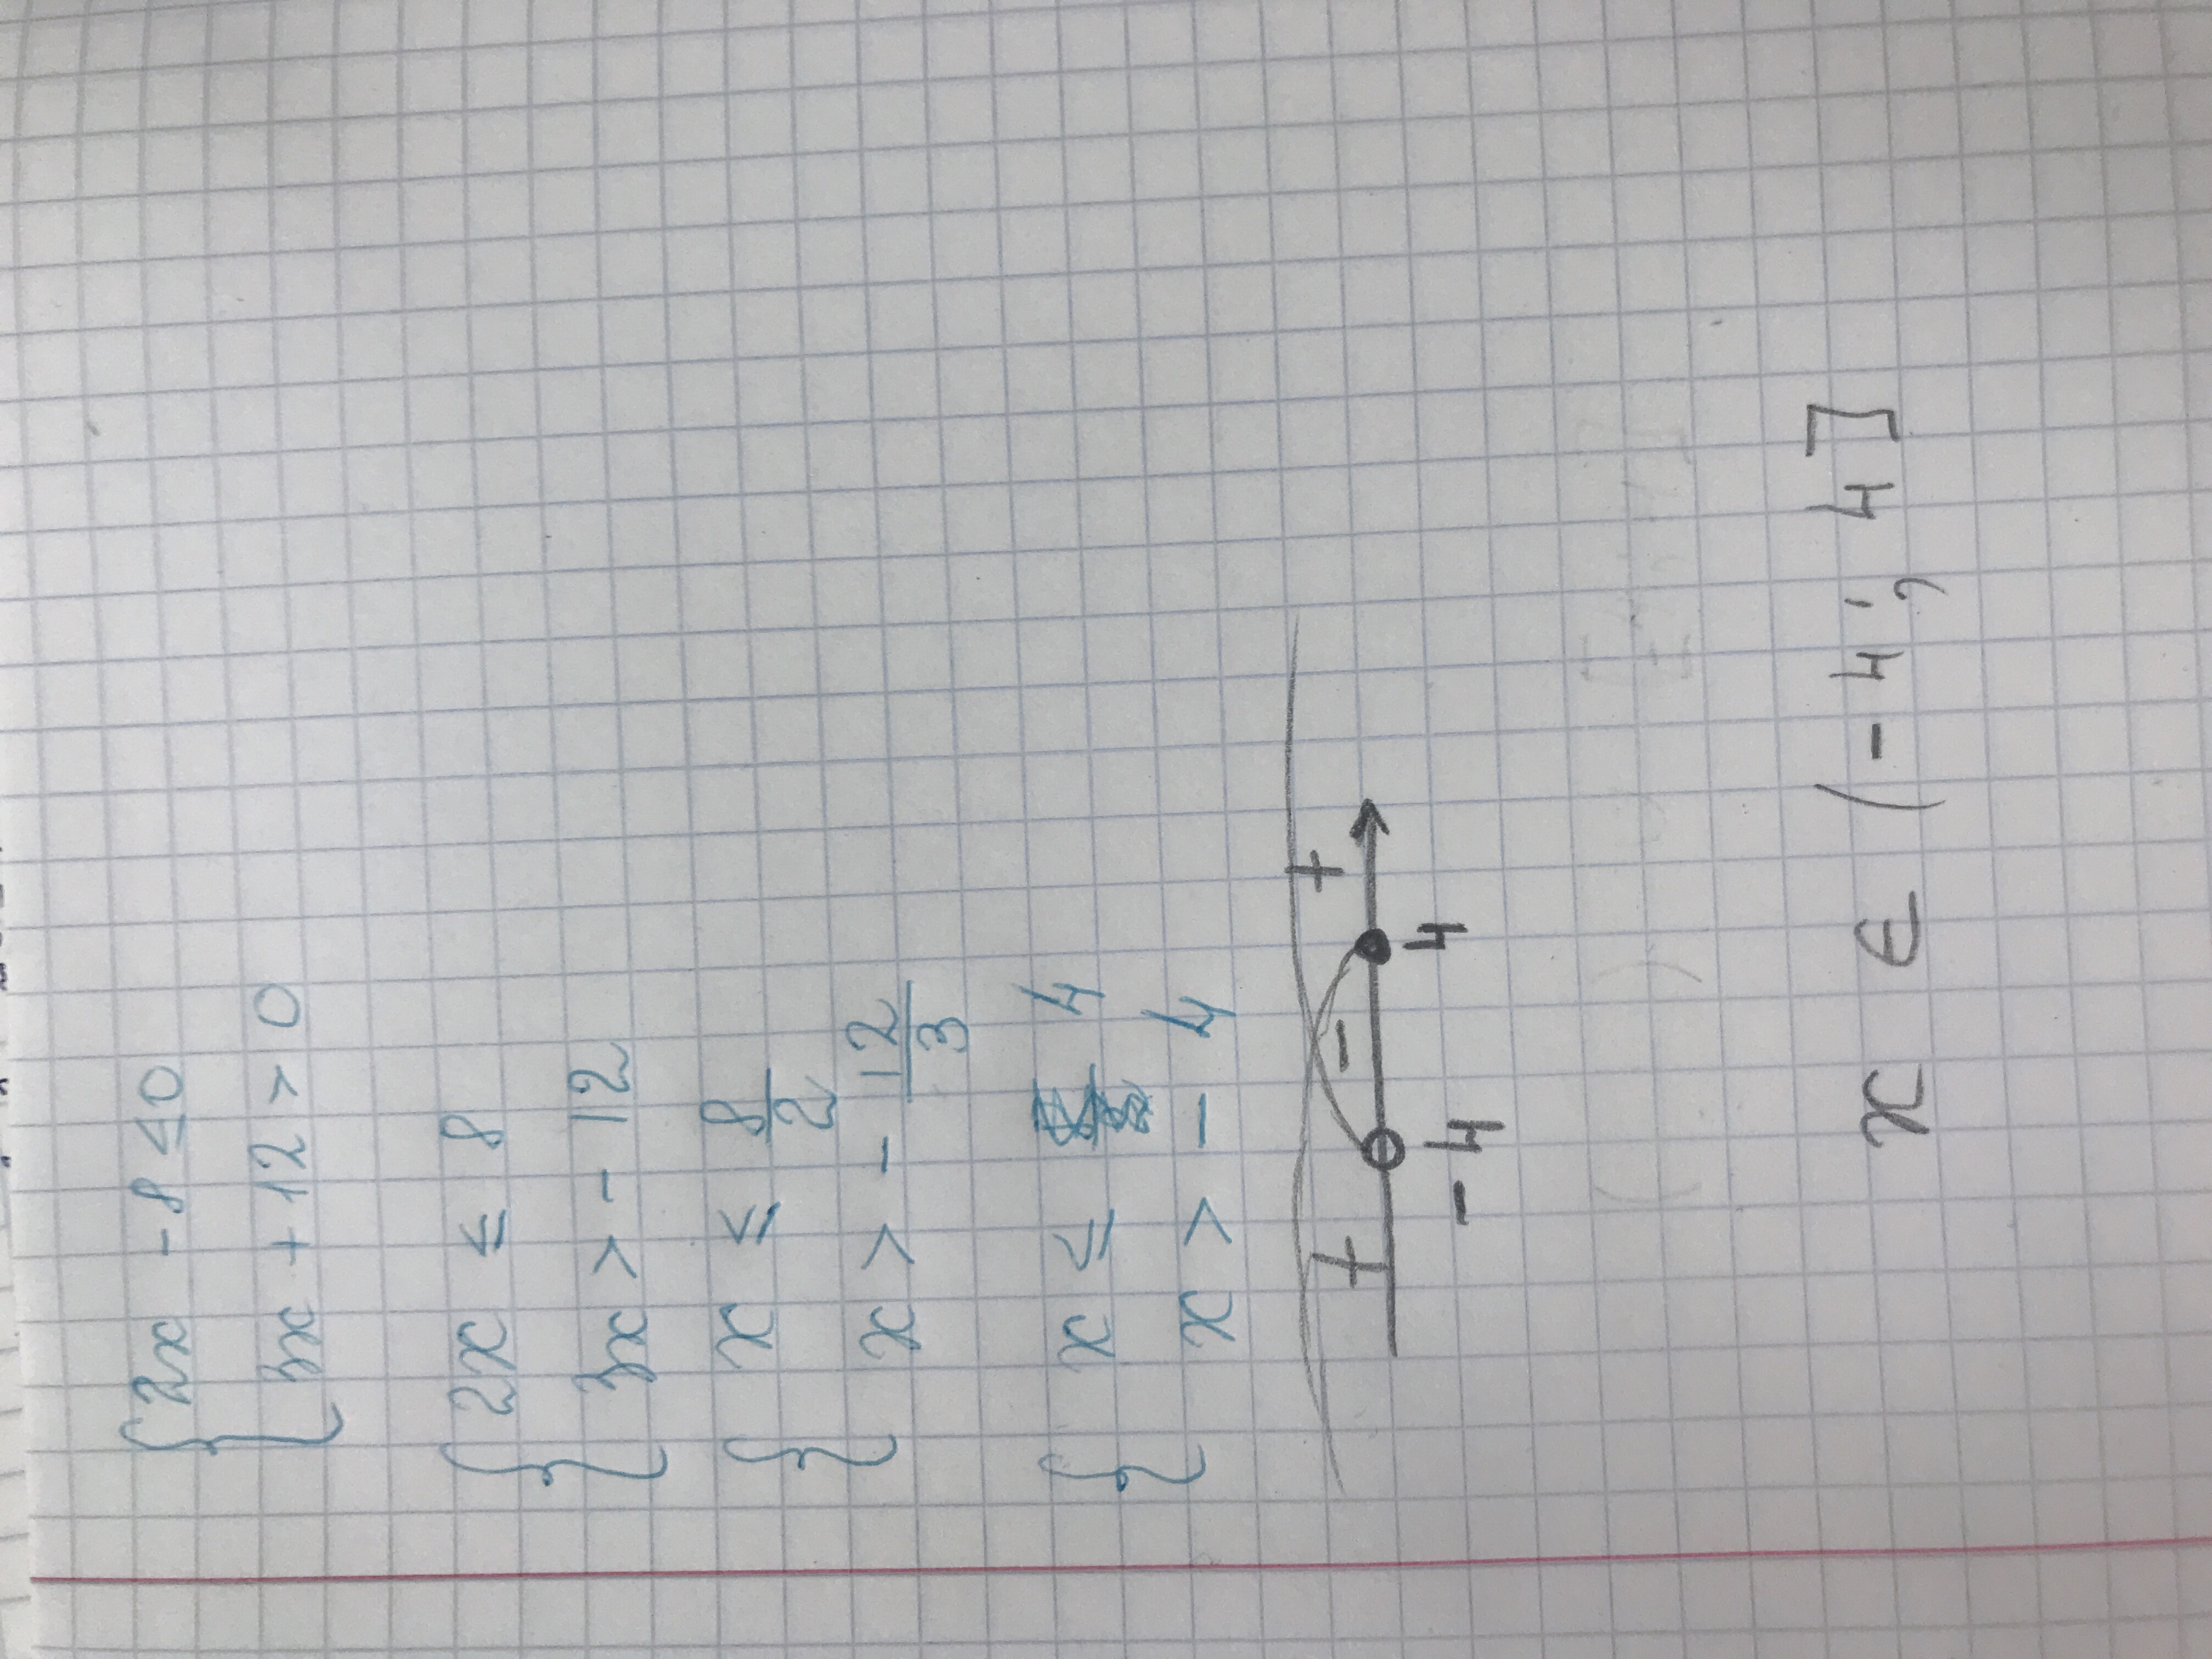 { 2x - 8 ≤ 0
3x + 12 > 0
{ 2x ≤ 8
3x > - 12
{ x ≤ 8/2
x > - 12/3
{ x ≤ 4
x > - 4
+ - +
-4 4
x ∈ (-4; 4]